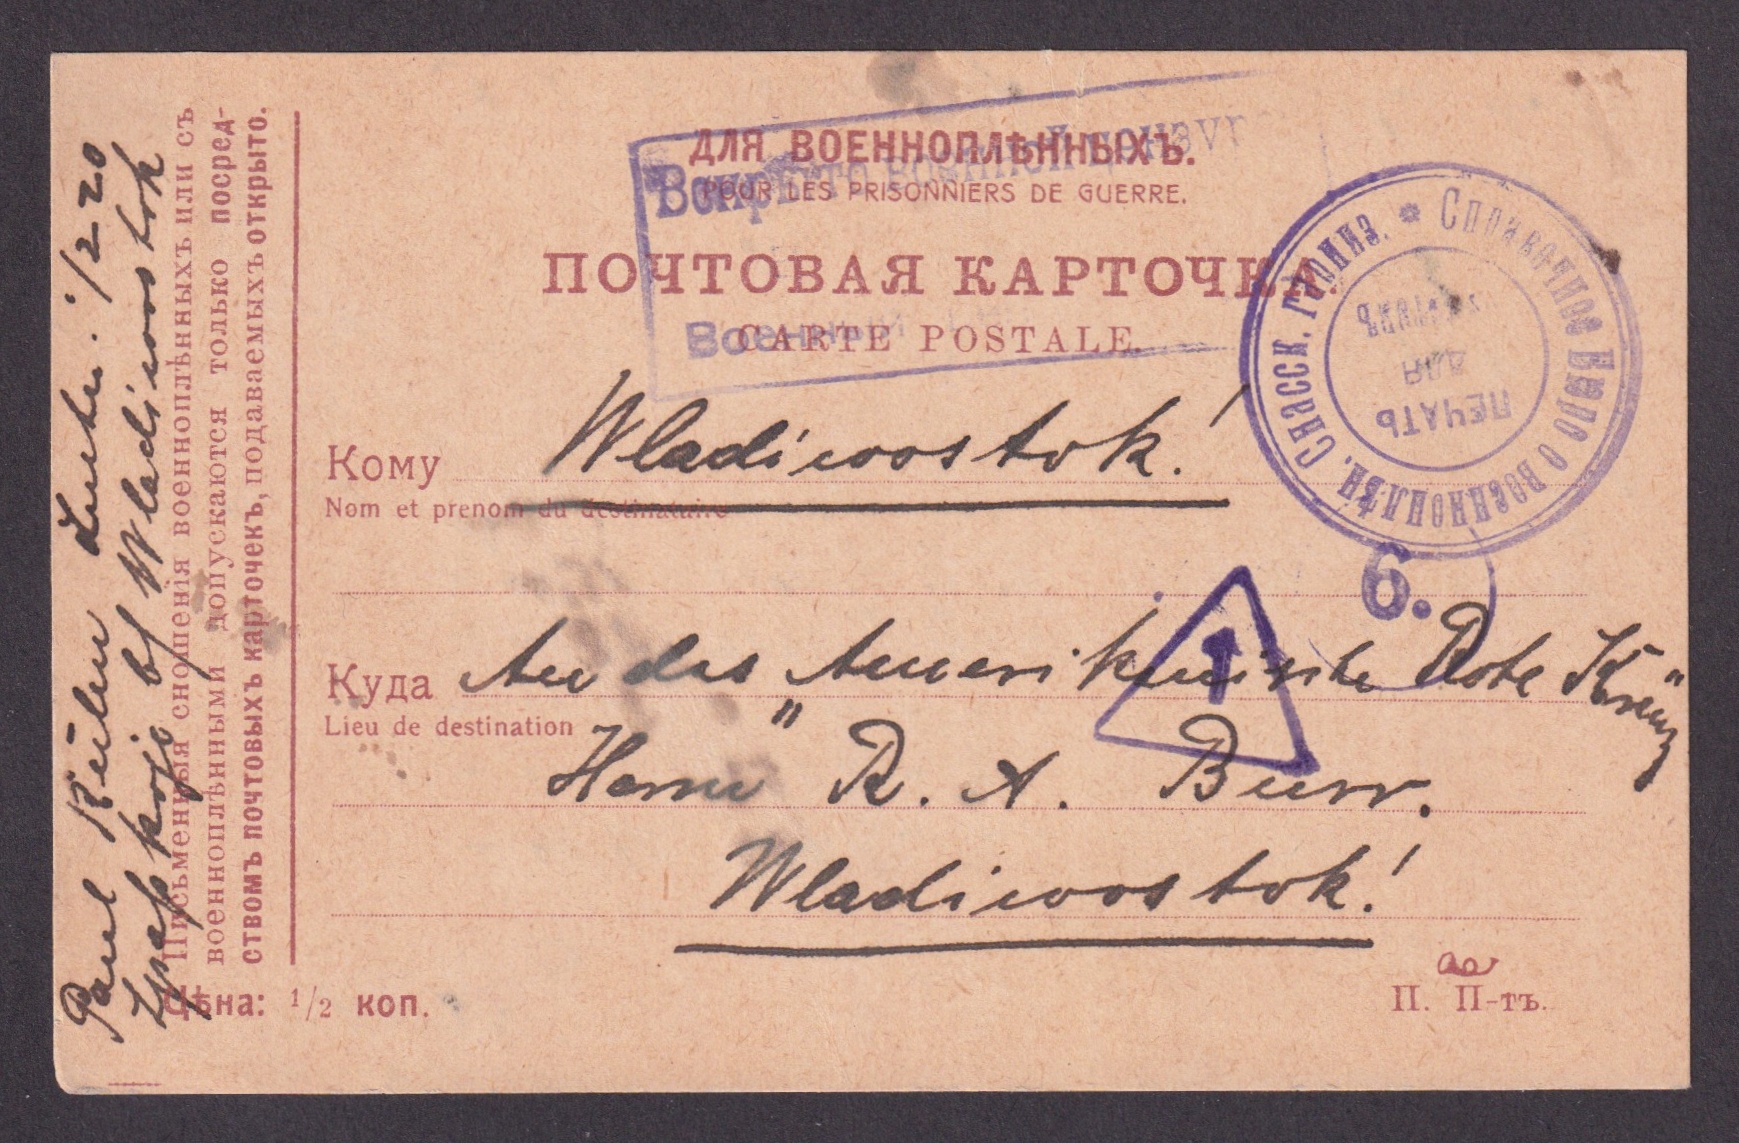 ДЛЯ ВОЕННОПЛѢННЫХЪ.
POUR LES PRISONNIERS DE GUERRE.
ПОЧТОВАЯ КАРТОЧКА.
CARTE POSTALE.
Вскрыто военной цензур
Военный
Справочное Бюро о военноплѣн. Спасск. гарниз. *
ПЕЧАТЬ
ДЛЯ
6.
1
Кому Wladiwostok!
Nom et prenom du destinataire
Куда An das Amerikanische Rote Kreuz
Lieu de destination
Herrn R. A. Burr.
Wladiwostok!
П. П-тъ.
Цѣна: 1/2 коп.
Письменныя сношенія военноплѣнныхъ или съ
военноплѣнными допускаются только посред-
ствомъ почтовыхъ карточекъ, подаваемыхъ открыто.
Paul 1/2 20
bf Wladiwostok